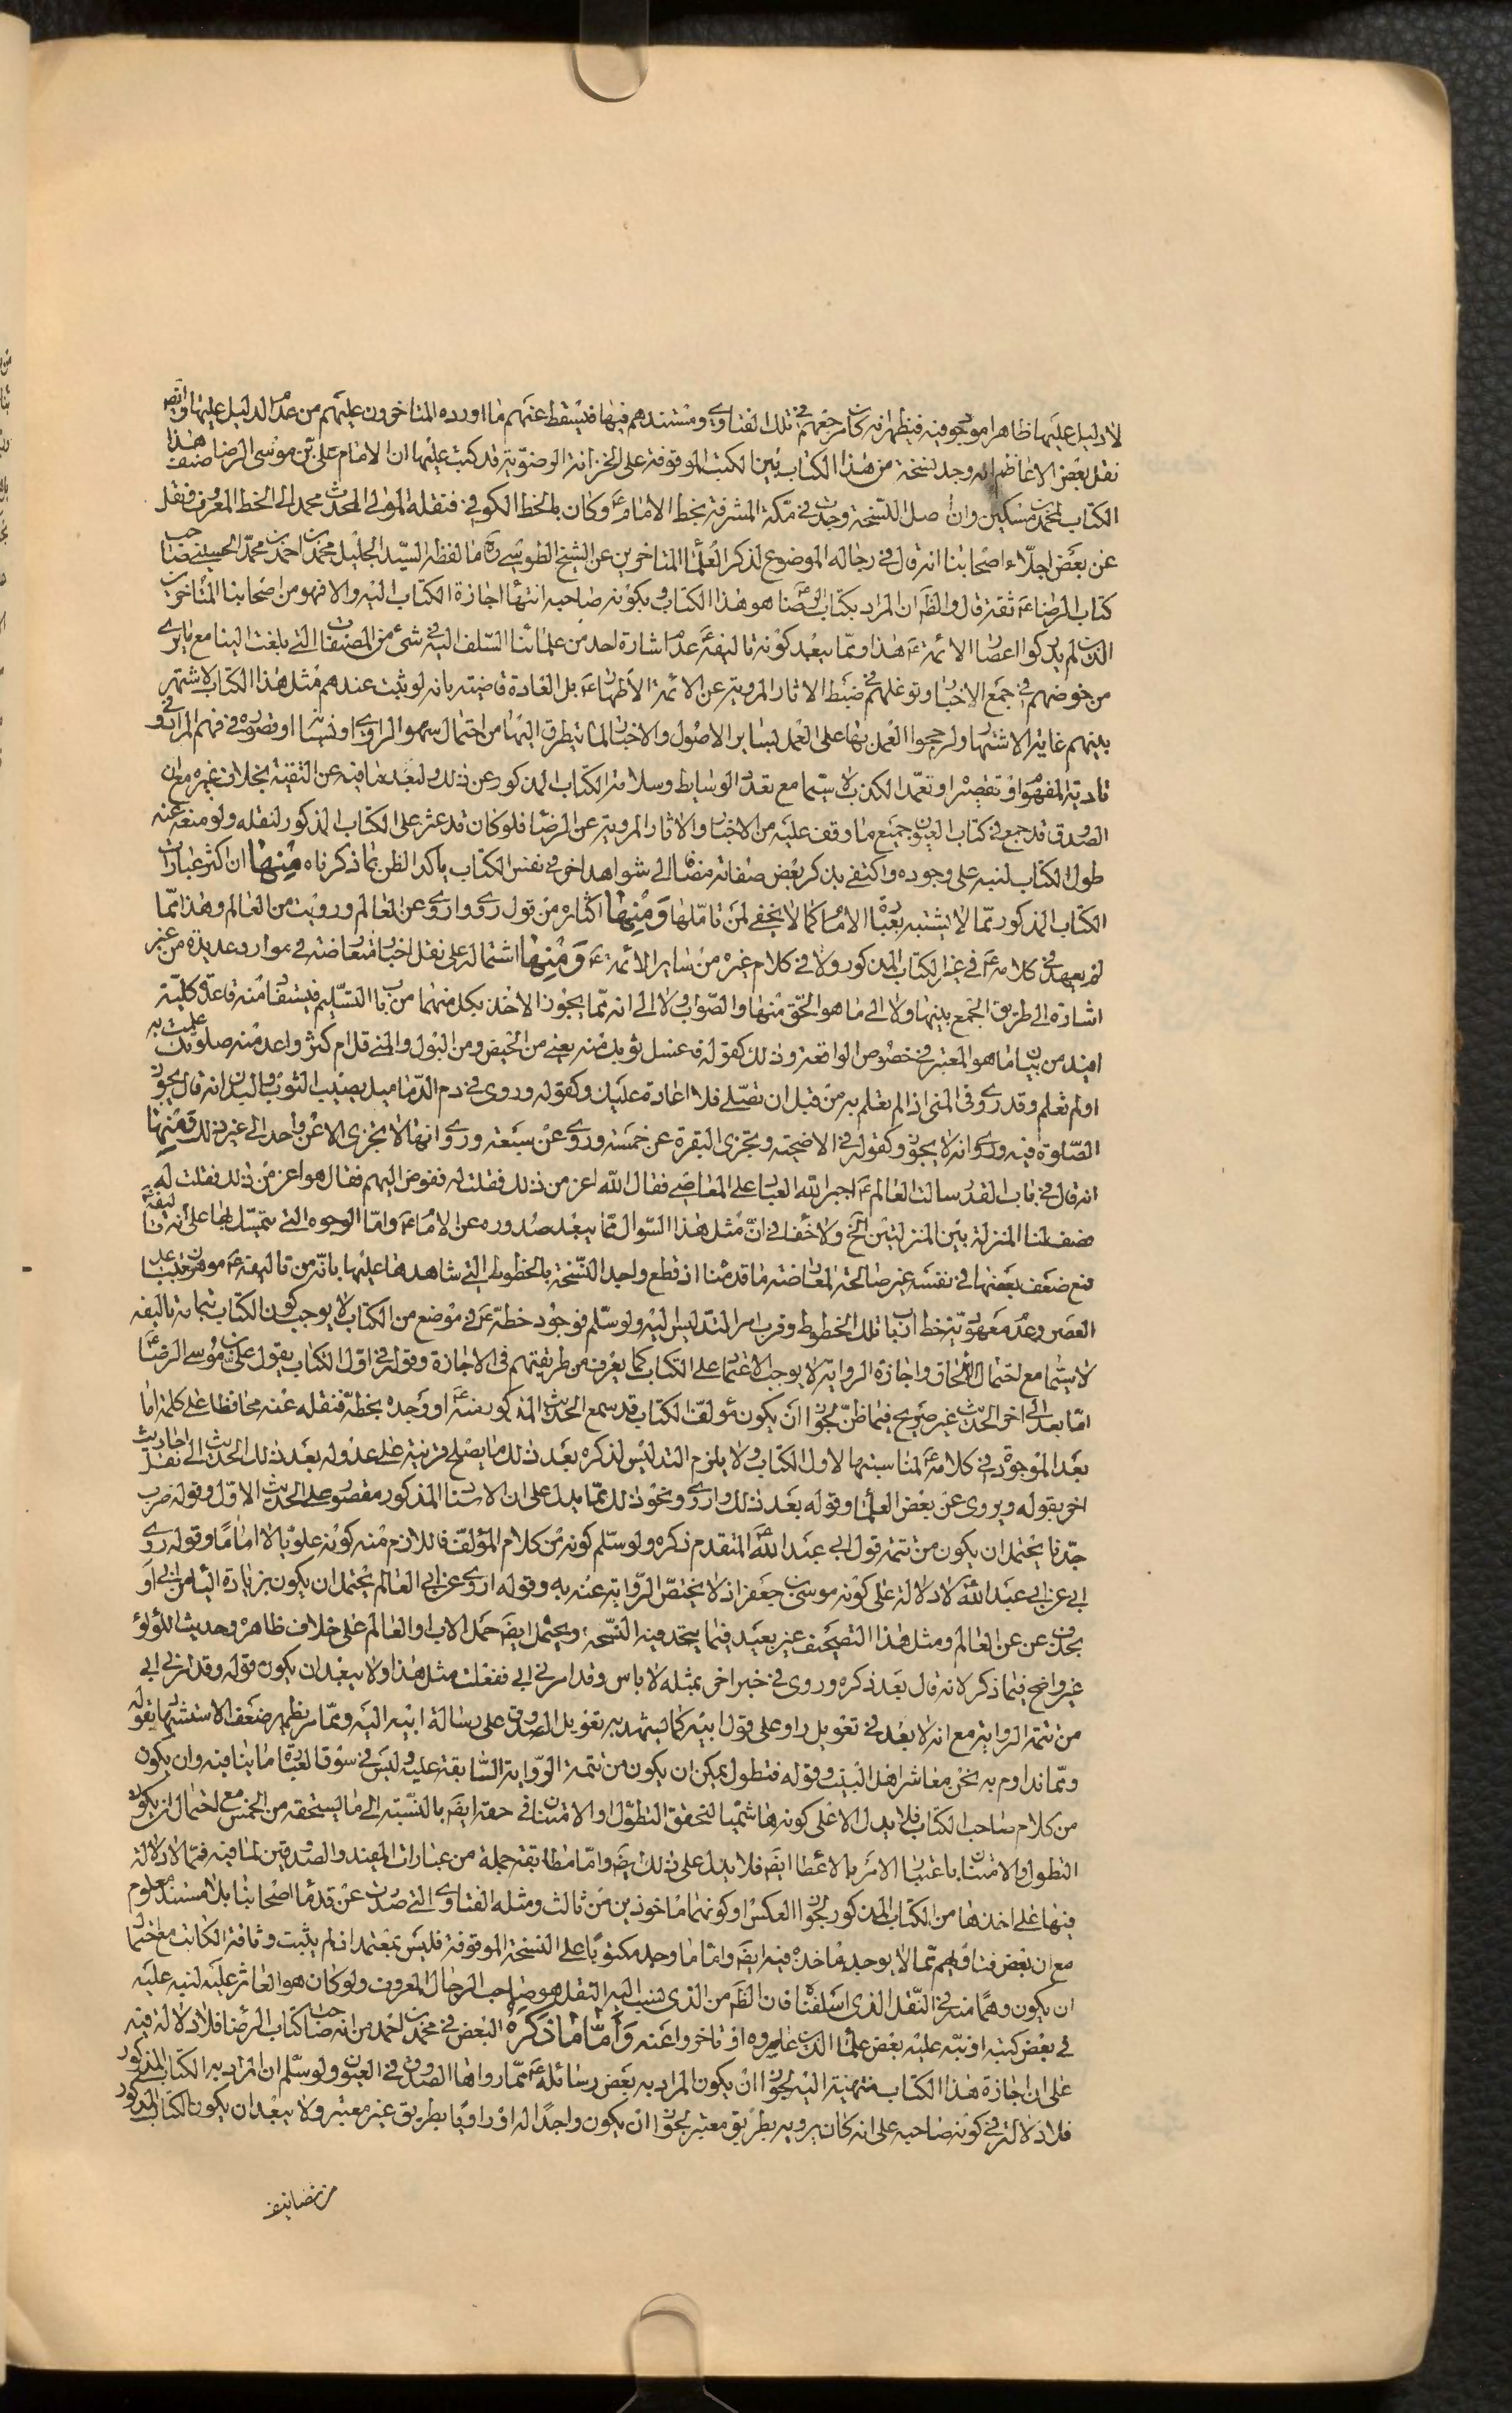 لا دليل عليها ظاهرا موجود فيه فيظهر انه كان مرجعهم في تلك الفتاوي ومستندهم فيها فيسقط عنهم ما اورده المتاخرون عليهم من عدم الدليل عليها وايضا
نقل بعض الاعاظم انه وجد نسخة من هذا الكتاب بين الكتب الموقوفة على الخزانة الرضوية قد كتب عليها ان الامام علي بن موسى الرضا صنف هذا
الكتاب لمحمد بن مسكين وان اصل النسخة وجدت في مكة المشرفة بخط الامام ع وكان بالخط الكوفي فنقله المولى المحدث محمد الى الخط المعروف فنقل
عن بعض اجلاء اصحابنا انه قال في رجاله الموضوع لذكر العلماء المتاخرين عن الشيخ الطوسي ره ما لفظه السيد الجليل محمد بن احمد بن محمد الحسيني صاحب
كتاب الرضا ع ثقة قال والظ ان المراد بكتاب الرضا ع هو هذا الكتاب وبكونه صاحبه انتهاء اجازة الكتاب اليه والا فهو من اصحابنا المتاخرين
الذين لم يدركوا اعصار الائمة ع هذا ومما يبعد كونه تاليفه ع عدم اشارة احد من علمائنا السلف اليه في شئ من المصنفات التي بلغت الينا مع ما يرى
من خوضهم في جمع الاخبار وتوغلهم في ضبط الاثار المروية عن الائمة الاطهار ع بل العادة قاضية بانه لو ثبت عندهم مثل هذا الكتاب لاشتهر
بينهم غاية الاشتهار ولرجحوا العمل به على العمل بساير الاصول والاخبار لما يتطرق اليها من احتمال سهو الراوي او نسيانه او قصوره في فهم المراد او في
تادية المفهوم او تقصيره او تعمد الكذب لا سيما مع تعدد الوسايط وسلامة الكتاب المذكور عن ذلك ولبعد ما فيه عن التقية بخلاف غيره مع ان
الصدوق قد جمع في كتاب العيون جميع ما وقف عليه من الاخبار والاثار المروية عن الرضا فلو كان قد عثر على الكتاب المذكور لنقله ولو منعه عنه
طول الكتاب لنبه على وجوده واكتفى بذكر بعض صفاته مضافا الى شواهد اخر في نفس الكتاب ياكد الظن بما ذكرناه منها ان اكثر عبارات
الكتاب المذكور مما لا يشتبه بعبارة الامام كما لا يخفى لمن تاملها ومنها اكثاره من قول روي واروي عن العالم ورويت من العالم وهذا مما
لم يعهد في كلامه ع في غير الكتاب المذكور ولا في كلام غيره من ساير الائمة ع ومنها اشتماله على نقل اخبار متعارضة في موارد عديدة من غير
اشارة الى طريق الجمع بينها ولا الى ما هو الحق منها والصواب ولا الى انه مما يجوز الاخذ بكل منهما من باب التسليم فيستفاد منه قاعدة كلية
افيد من بيان ما هو المعتبر في خصوص الواقعة وذلك كقوله في غسل ثوبك منه يعني من الحيض ومن البول والمني قل ام كثر واعد منه صلوتك علمت به
او لم تعلم وقد روي في المني اذا لم تعلم به من قبل ان تصلي فلا اعادة عليك وكقوله وروي في دم الدماميل يصيب الثوب والبدن انه قال يجوز
الصلوة فيه وروي انه لا يجوز وكقوله في الاضحية وتجزي البقرة عن خمسة وروي عن سبعة وروي انها لا تجزي الا عن واحد الى غير ذلك ومنها
انه قال في باب القدر سالت العالم ع اجبر الله العباد على المعاصي فقال الله اعز من ذلك فقلت له ففوض اليهم فقال هو اعز من ذلك فقلت له
صف لنا المنزلة بين المنزلتين الخ ولا خفاء في ان مثل هذا السؤال مما يبعد صدوره عن الامام ع واما الوجوه التي تمسك بها على انه تاليفه ع
فمع ضعف بعضها في نفسه غير صالحة لمعارضة ما قدمنا اذ قطع واجد النسخة بالخطوط التي شاهدها عليها بانه من تاليفه ع موهون ببعد
العصر وعدم معهودية خط ارباب تلك الخطوط وقرب امر التدليس فيه ولو سلم فوجود خطه ع في موضع من الكتاب لا يوجب كون الكتاب بتمامه تاليفه
لا سيما مع احتمال الالحاق واجازة الرواية لا يوجب الاعتماد على الكتاب كما يعرف من طريقتهم في الاجازة وقوله في اول الكتاب يقول علي بن موسى الرضا ع
اما بعد الى اخر الحديث غير صريح فيما ظن لجواز ان يكون مؤلف الكتاب قد سمع الحديث المذكور منه ع او وجده بخطه فنقله عنه محافظا على كلمة اما
بعد الموجودة في كلامه ع لمناسبتها لاول الكتاب ولا يلزم التدليس لذكره بعد ذلك ما يصلح قرينة على عدوله بعد ذلك الحديث الى نقل احاديث
اخر بقوله ويروى عن بعض العلماء وقوله بعد ذلك واروي ونحو ذلك مما يدل على ان الاسناد المذكور مقصور على الحديث الاول وقوله ضرب
جدنا يحتمل ان يكون من تتمة قول ابي عبد الله ع المتقدم ذكره ولو سلم كونه من كلام المؤلف فاللازم منه كونه علويا لا اماما وقوله روى
ابي عن ابي عبد الله ع لا دلالة على كونه موسى بن جعفر اذ لا يختص الرواية عنه به وقوله اروي عن ابي العالم يحتمل ان يكون بزيادة الياء من ابي او
بحذف عن عن العالم ومثل هذا التصحيف غير بعيد فيما يتحد فيه النسخة ويحتمل ايض حمل الاب او العالم على خلاف ظاهره وحديث اللؤلؤ
غير واضح فيما ذكر لانه قال بعد ذكره وروي في خبر اخر بمثله لا باس وقد امرني ابي ففعلت مثل هذا ولا يبعد ان يكون قوله وقد امرني ابي
من تتمة الرواية مع انه لا بعد في تعويل راو على قول ابيه كما يشهد به تعويل الصدوق على رسالة ابيه اليه ومما مر يظهر ضعف الاستشهاد بقوله
ومما نداوم به نحن معاشر اهل البيت وقوله فتطول يمكن ان يكون من تتمة الرواية السابقة عليه وليس في سوق العبارة ما ينافيه وان يكون
من كلام صاحب الكتاب فلا يدل الا على كونه هاشميا لتحقق التطول والامتنان في حقه ايض بالنسبة الى ما يستحقه من الخمس مع احتمال ان يكون
التطول والامتنان باعتبار الامر بالاعطاء ايض فلا يدل على ذلك ايض واما مطابقة جملة من عبارات المفيد والصدوقين لما فيه فمما لا دلالة
فيها على اخذها من الكتاب المذكور لجواز العكس او كونهما ماخوذين من ثالث ومثله الفتاوي التي صدرت عن قدماء اصحابنا بلا مستند معلوم
مع ان بعض فتاويهم مما لا يوجد ماخذه فيه ايض واما ما وجد مكتوبا على النسخة الموقوفة فليس بمعتمد اذ لم يثبت وثاقة الكاتب مع احتمال
ان يكون وهما منه في النقل الذي اسلفنا فان الظ من الذي نسب اليه النقل هو صاحب الرجال المعروف ولو كان هو العاثر عليه لنبه عليه
في بعض كتبه او نبه عليه بعض علمائنا الذين عاصروه او تاخروا عنه واما ما ذكره البعض في محمد بن احمد من انه صاحب كتاب الرضا فلا دلالة فيه
على ان اجازة هذا الكتاب منتهية اليه لجواز ان يكون المراد به بعض رسائله ع مما رواها الصدوق في العيون ولو سلم ان المراد به الكتاب المذكور
فلا دلالة في كونه صاحبه على انه كان يرويه بطريق معتبر لجواز ان يكون واجدا له او راويا بطريق غير معتبر ولا يبعد ان يكون الكتاب المذكور
من تصانيف